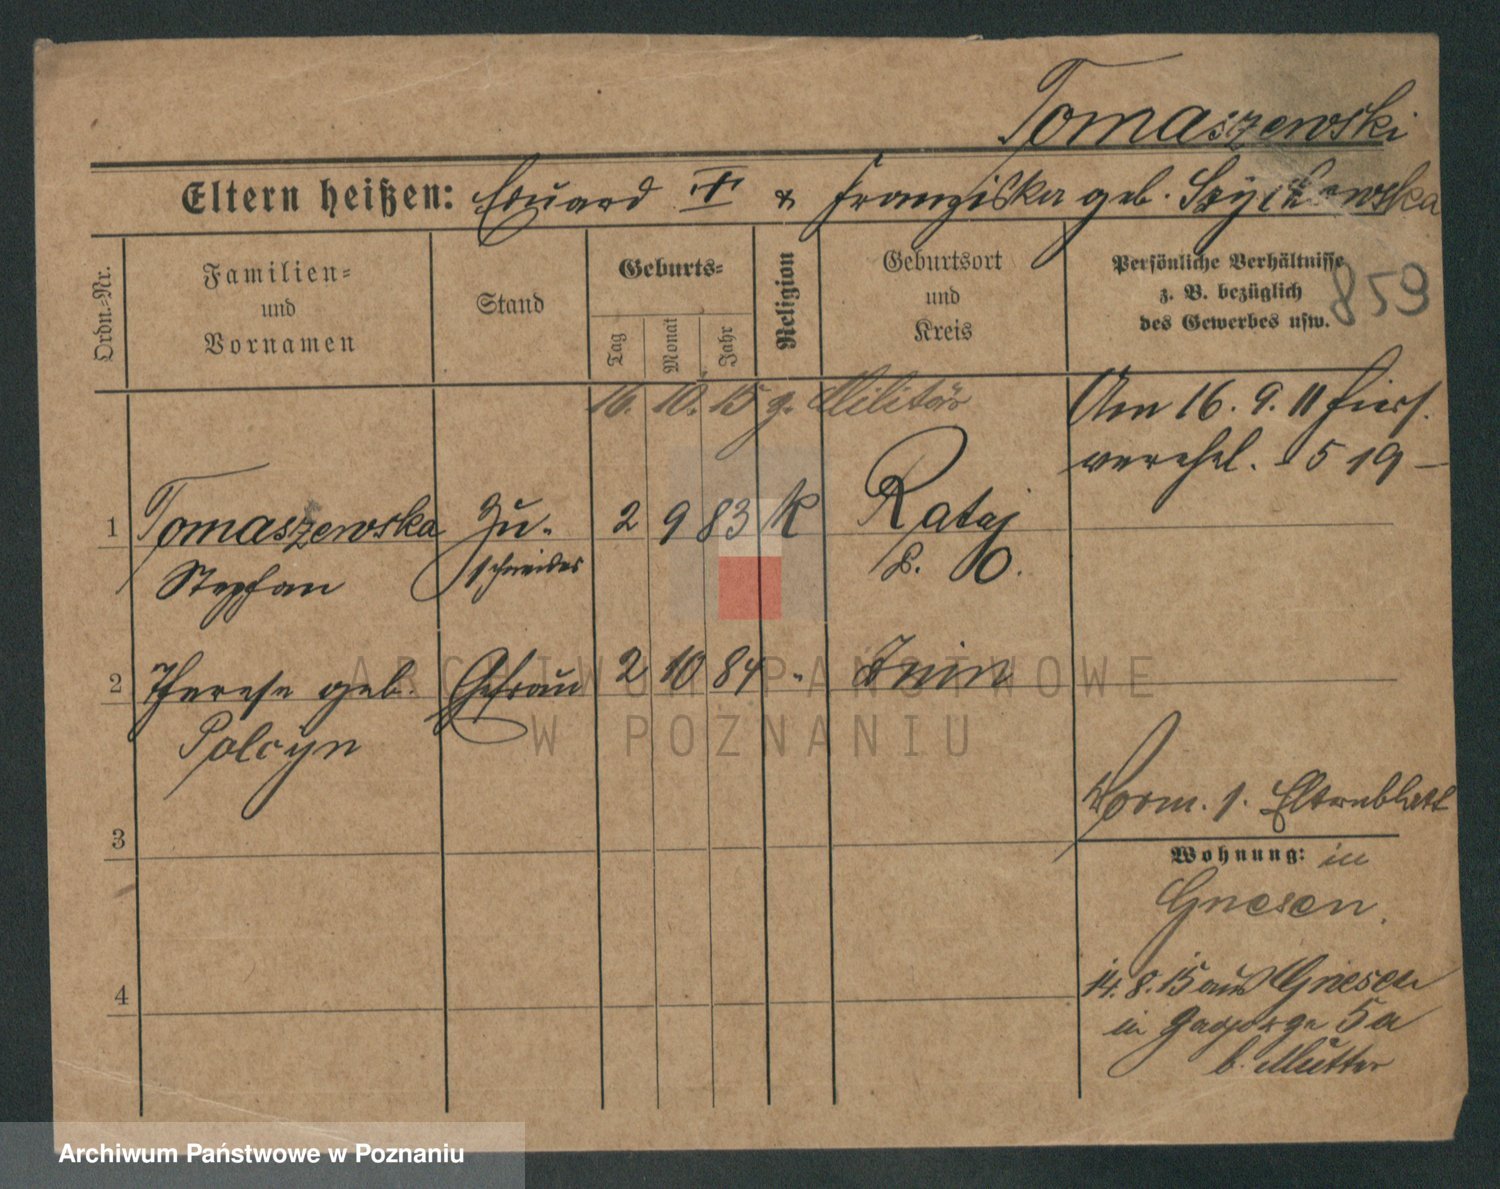 Tomaszewski
Eltern heißen: Eduard III & Franziska geb.
859
Ordn.-Nr.
Familien-
und
Vornamen
Stand
Geburts-
Tag
Monat
Jahr
Religion
Geburtsort
und
Kreis
Persönliche Verhältnisse
z. B. bezüglich
des Gewerbes usw.
16. 10. 15 z. Militär
Am 16. 9. 11 hier
verehel. 519
1 Tomaszewska Zu- 2 9 83 K Rataj
Stephan schneider P. O.
2 Therese geb. Ehefrau 2 10 84 " Znin
Polcyn
Vorm. s. Elternblatt
3
Wohnung: in
Gnesen.
4
14. 8. 15 aus Gnesen
in 5a
b. Mutter
ARCHIWUM PAŃSTWOWE
W POZNANIU
Archiwum Państwowe w Poznaniu